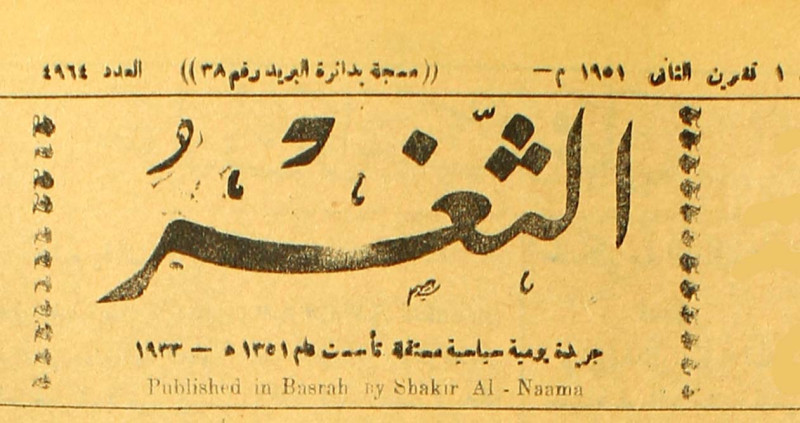 ١ تشرين الثاني ١٩٥١ م — ((مسجلة بدائرة البريد رقم ٣٨)) العدد ٤٩٦٤
الثغر
جريدة يومية سياسية مستقلة تأسست عام ١٣٥١ ه — ١٩٣٣
Published in Basrah by Shakir Al - Naama